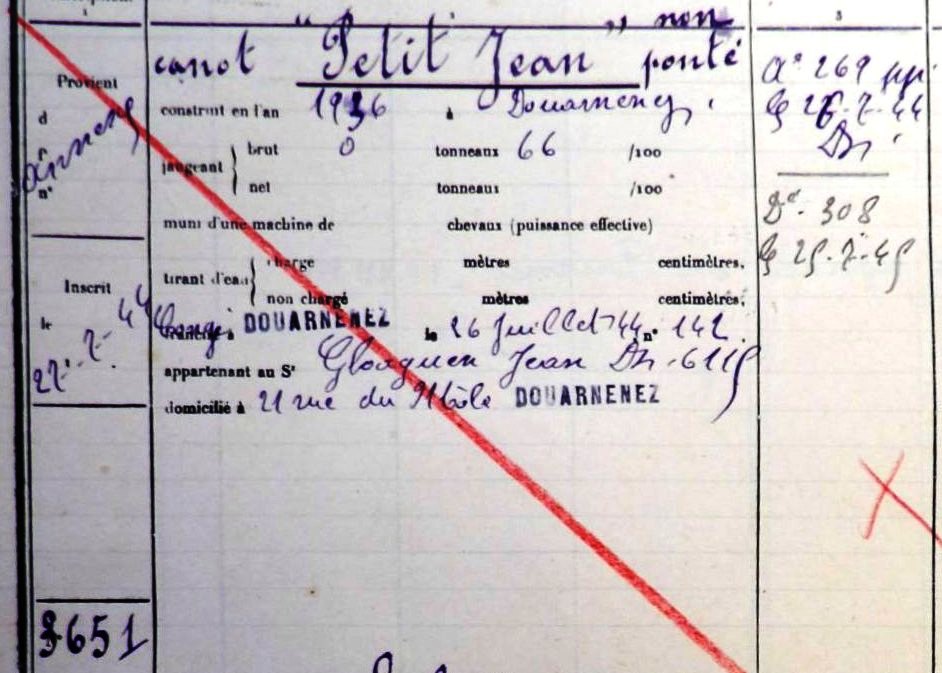 1
3
" " non
canot Petit Jean ponté
Provient
d
annexe
n°
construit en l'an 1936 à Douarnenez.
jaugeant brut 0 tonneaux 66 /100
net tonneaux /100
muni d'une machine de chevaux (puissance effective)
tirant d'eau charge mètres centimètres.
non chargé mètres centimètres.
Inscrit
le
27-7-44
Congé à DOUARNENEZ le 26 Juillet 44 n° 142
appartenant au Sr Gloaguen Jean Dz. 6115
domicilié à 21 rue du Môle DOUARNENEZ
3651
Ae 269
le 26-7-44
Dz.
De. 308
le 25-7-45